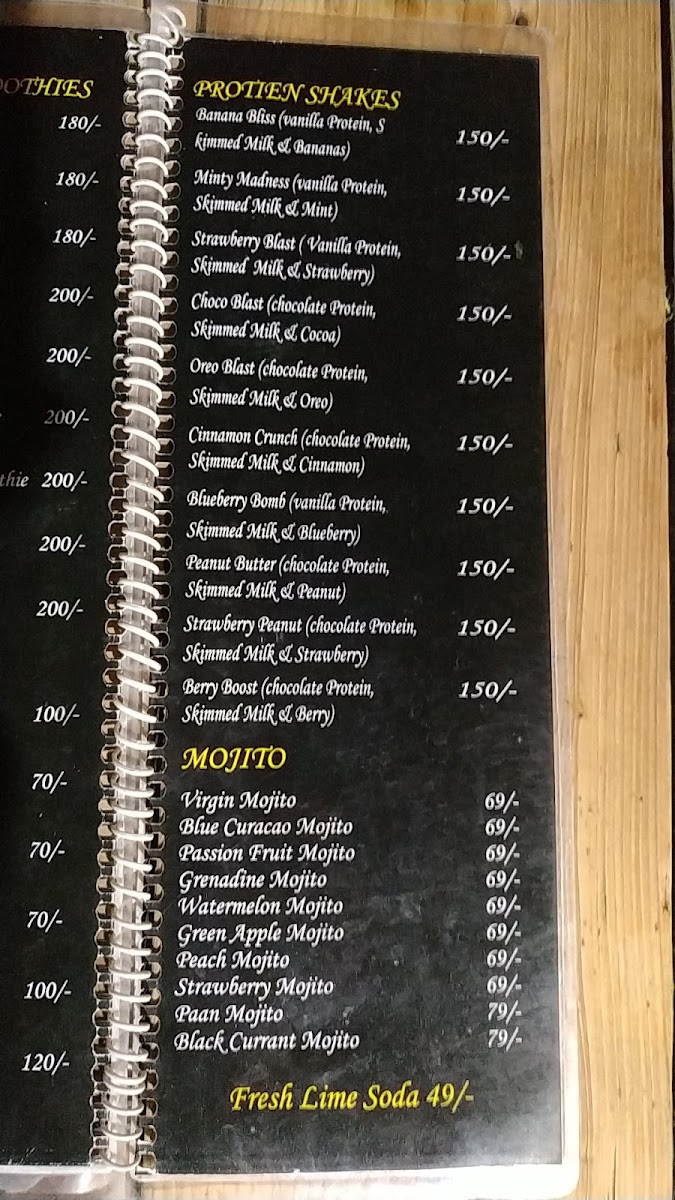 OOTHIES
180/-
180/-
180/-
200/-
200/-
200/-
thie 200/-
200/-
200/-
100/-
70/-
70/-
70/-
100/-
120/-
PROTIEN SHAKES
Banana Bliss (vanilla Protein, S
kimmed Milk & Bananas) 150/-
Minty Madness (vanilla Protein,
Skimmed Milk & Mint) 150/-
Strawberry Blast ( Vanilla Protein,
Skimmed Milk & Strawberry) 150/-
Choco Blast (chocolate Protein,
Skimmed Milk & Cocoa) 150/-
Oreo Blast (chocolate Protein,
Skimmed Milk & Oreo) 150/-
Cinnamon Crunch (chocolate Protein,
Skimmed Milk & Cinnamon) 150/-
Blueberry Bomb (vanilla Protein,
Skimmed Milk & Blueberry) 150/-
Peanut Butter (chocolate Protein,
Skimmed Milk & Peanut) 150/-
Strawberry Peanut (chocolate Protein,
Skimmed Milk & Strawberry) 150/-
Berry Boost (chocolate Protein,
Skimmed Milk & Berry) 150/-
MOJITO
Virgin Mojito 69/-
Blue Curacao Mojito 69/-
Passion Fruit Mojito 69/-
Grenadine Mojito 69/-
Watermelon Mojito 69/-
Green Apple Mojito 69/-
Peach Mojito 69/-
Strawberry Mojito 69/-
Paan Mojito 79/-
Black Currant Mojito 79/-
Fresh Lime Soda 49/-